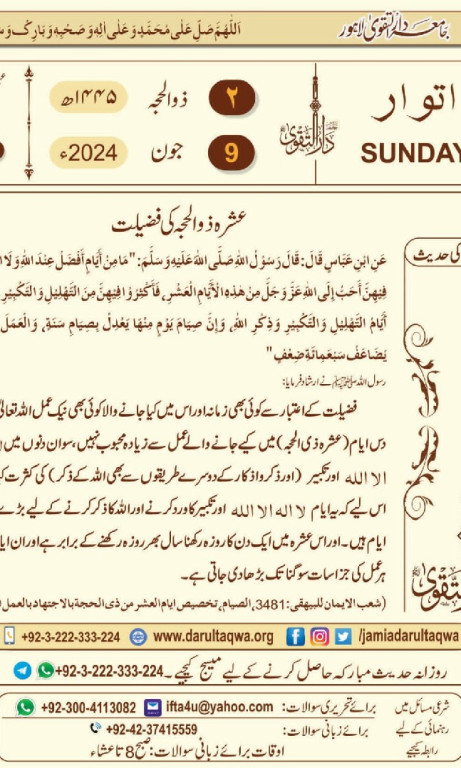 جامعہ دارالتقویٰ لاہور
اَللّٰهُمَّ صَلِّ عَلٰى مُحَمَّدٍ وَّعَلٰى اٰلِهٖ وَصَحْبِهٖ وَبَارِكْ وَسَ
اتوار
SUNDAY
دارالتقویٰ
۲ ذوالحجہ ۱۴۴۵ھ
9 جون 2024ء
عشرہ ذوالحجہ کی فضیلت
کی حدیث
عَنِ ابْنِ عَبَّاسٍ قَالَ: قَالَ رَسُوْلُ اللهِ صَلَّى اللهُ عَلَيْهِ وَسَلَّمَ: "مَا مِنْ أَيَّامٍ أَفْضَلُ عِنْدَ اللهِ وَلَا ا
فِيْهِنَّ أَحَبُّ إِلَى اللهِ عَزَّ وَجَلَّ مِنْ هٰذِهِ الْأَيَّامِ الْعَشْرِ، فَأَكْثِرُوْا فِيْهِنَّ مِنَ التَّهْلِيْلِ وَالتَّكْبِيْرِ
أَيَّامُ التَّهْلِيْلِ وَالتَّكْبِيْرِ وَذِكْرِ اللهِ، وَإِنَّ صِيَامَ يَوْمٍ مِنْهَا يَعْدِلُ بِصِيَامِ سَنَةٍ، وَالْعَمَلُ
يُضَاعَفُ سَبْعَمِائَةِ ضِعْفٍ"
رسول اللہ ﷺ نے ارشاد فرمایا:
فضیلت کے اعتبار سے کوئی بھی زمانہ اور اس میں کیا جانے والا کوئی بھی نیک عمل اللہ تعالیٰ
دس ایام (عشرہ ذی الحجہ) میں کیے جانے والے عمل سے زیادہ محبوب نہیں، سو ان دنوں میں
الا اللہ اور تکبیر (اور ذکر و اذکار کے دوسرے طریقوں سے بھی اللہ کے ذکر) کی کثرت
اس لیے کہ یہ ایام لا الہ الا اللہ اور تکبیر کا ورد کرنے اور اللہ کا ذکر کرنے کے لیے بڑے
ایام ہیں۔ اور اس عشرہ میں ایک دن کا روزہ رکھنا سال بھر روزہ رکھنے کے برابر ہے اور ان ایا
ہر عمل کی جزا سات سو گنا تک بڑھا دی جاتی ہے۔
(شعب الایمان للبیهقی: 3481، الصیام، تخصیص ایام العشر من ذی الحجة بالاجتهاد بالعمل
+92-3-222-333-224 www.darultaqwa.org /jamiadarultaqwa
روزانہ حدیث مبارکہ حاصل کرنے کے لیے میسج کیجیے۔ +92-3-222-333-224
شرعی مسائل میں
رہنمائی کے لیے
رابطہ کیجیے
برائے تحریری سوالات: ifta4u@yahoo.com +92-300-4113082
برائے زبانی سوالات: +92-42-37415559
اوقات برائے زبانی سوالات: صبح 8 تا عشاء